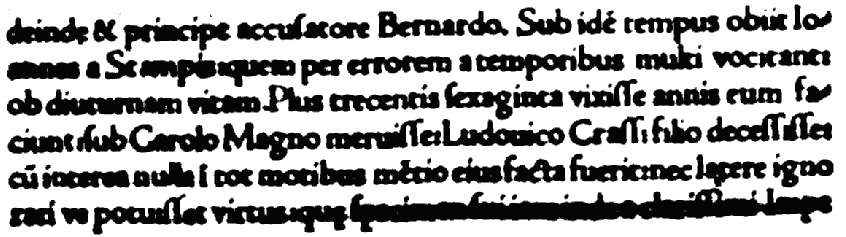 deinde & principe accusatore Bernardo. Sub idé tempus obiit Io-
annes a Stampis:quem per errorem a temporibus multi vocitant:
ob diuturnam vitam. Plus trecentis ſexaginta vixiſſe annis eum fa-
ciunt:ſub Carolo Magno meruiſſe:Ludouico Craſſi filio deceſſiſſe:
cū interea nulla ī tot motibus mētio eius facta fuerit:nec latere igno
rari ve potuiſſet virtus:quę